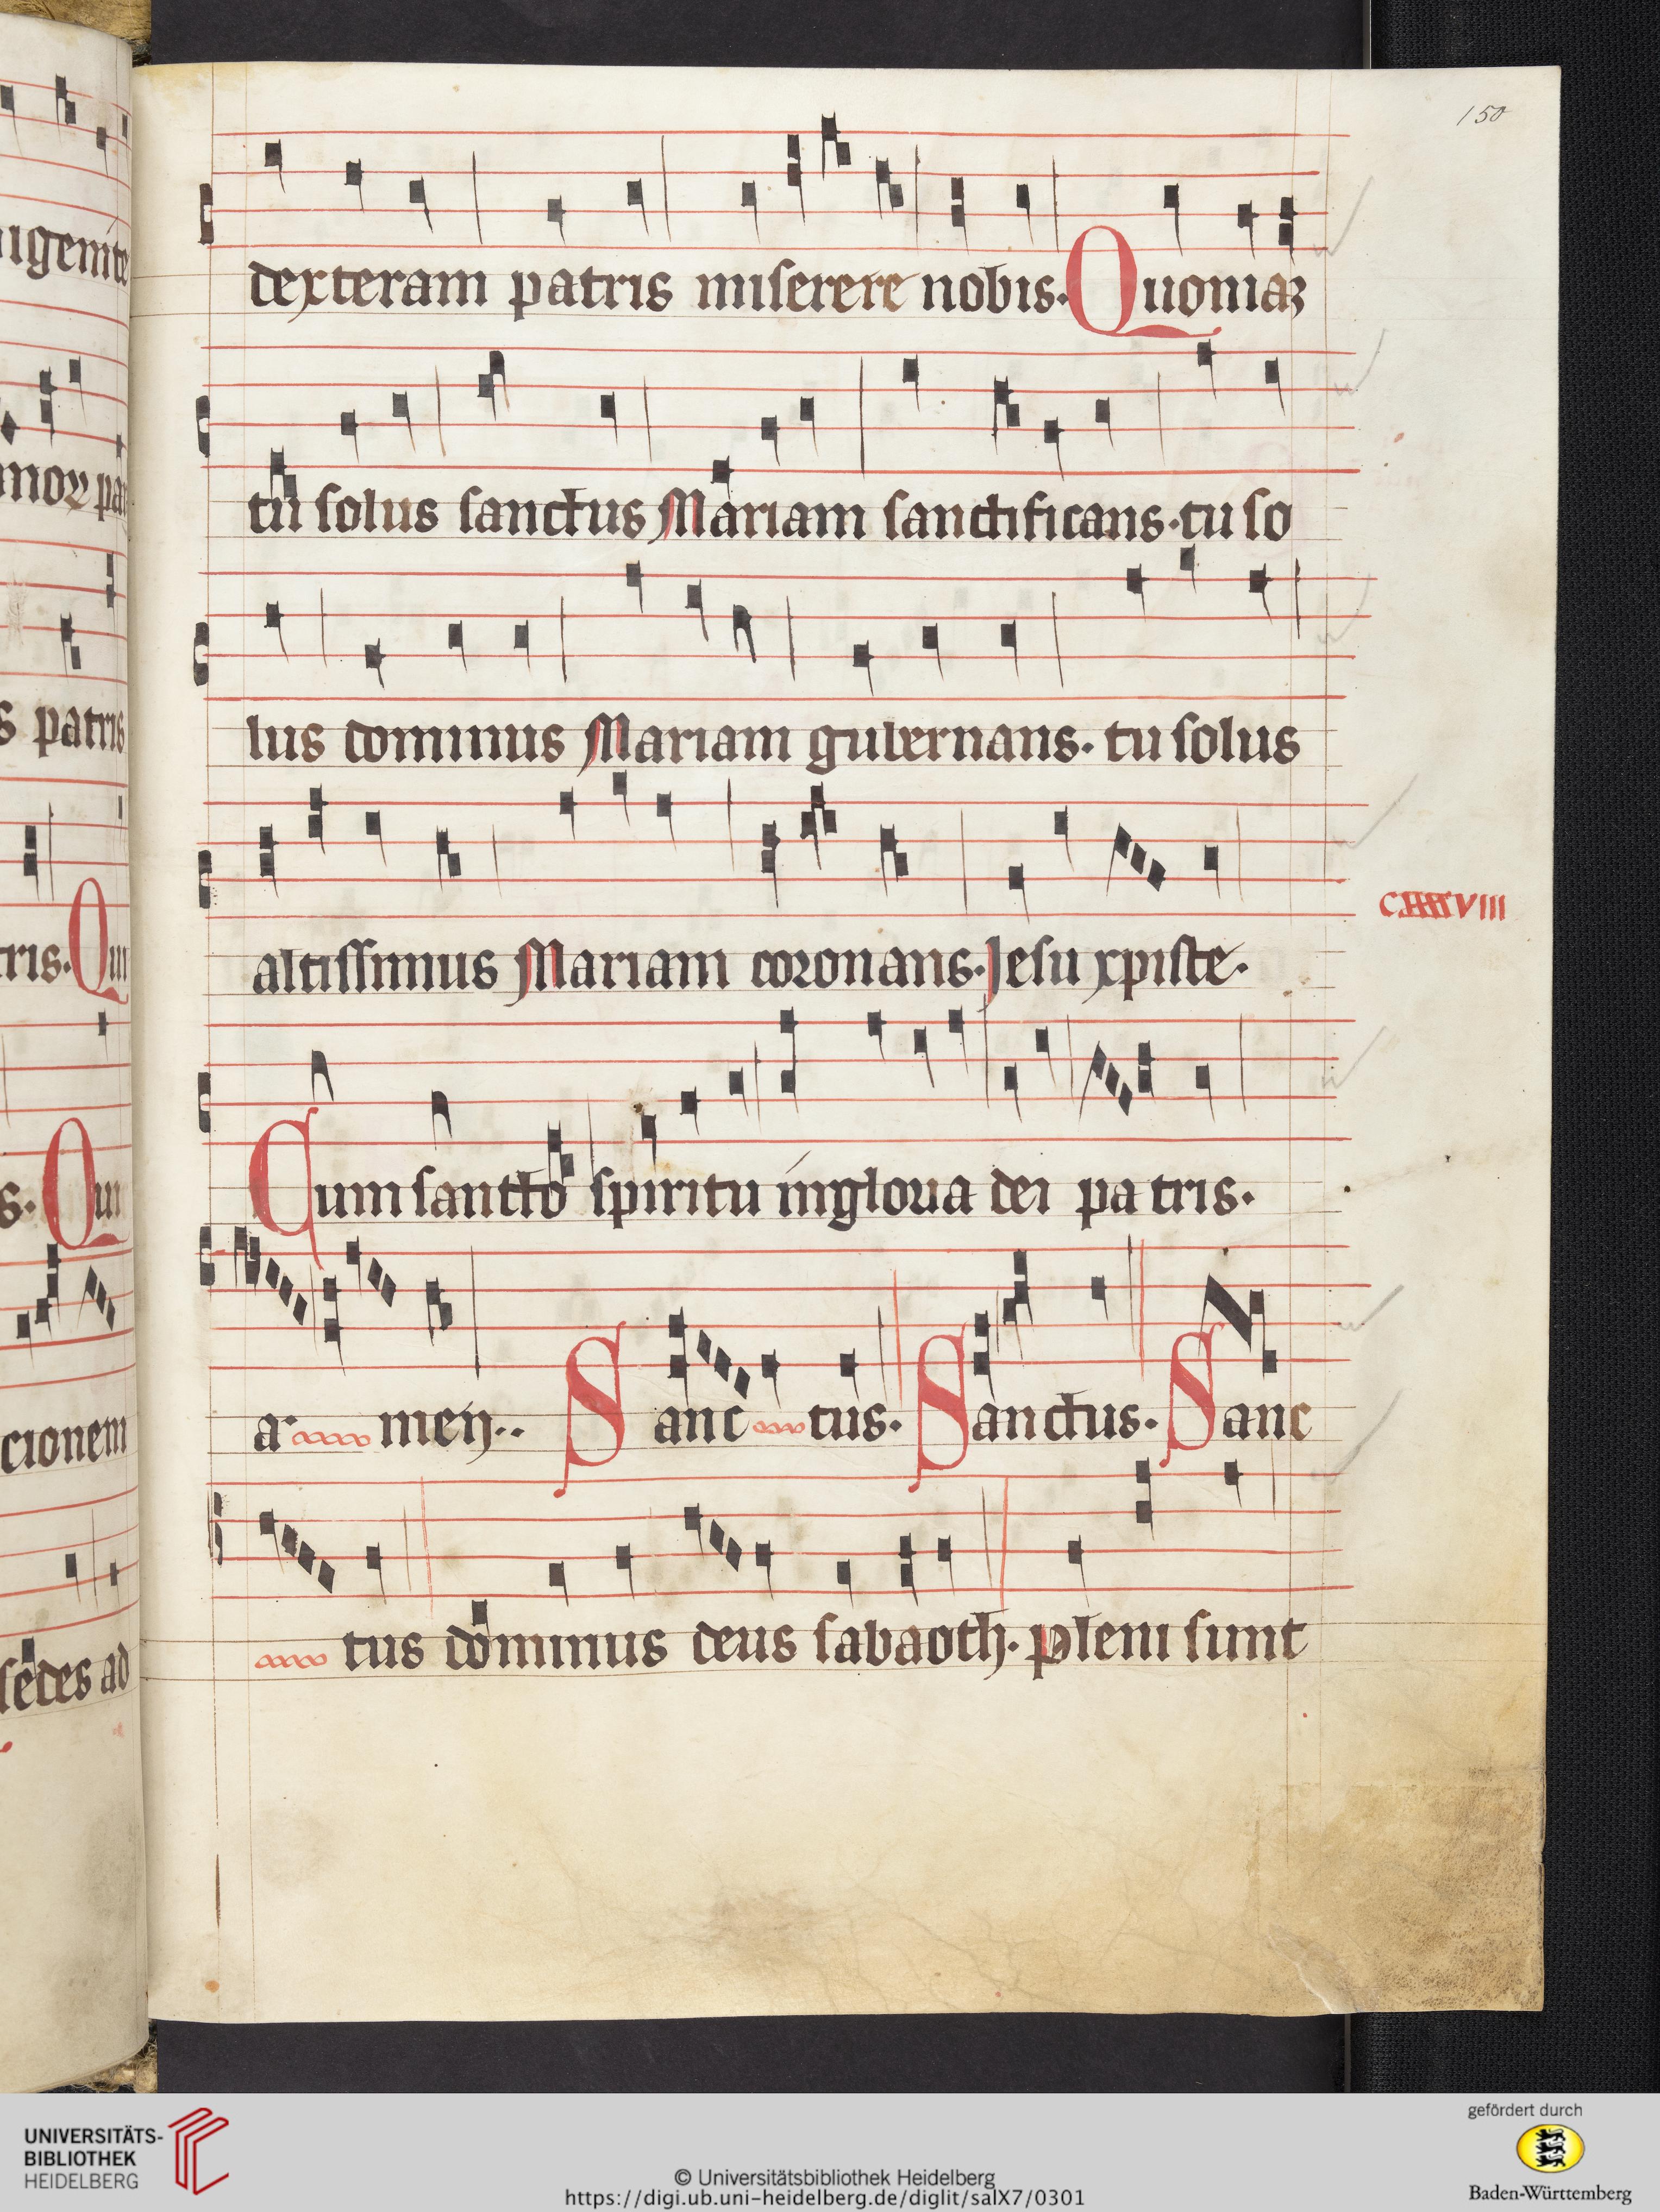 150
dexteram patris miserere nobis. Quoniaʒ
tu solus sanctus Mariam sanctificans. tu so
lus dominus Mariam gubernans. tu solus
altissimus Mariam coronans. Jesu xpiste.
CXXXXVIII
Cum sancto spiritu in gloria dei patris.
a men.. Sanc tus. Sanctus. Sanc
tus dominus deus sabaoth. pleni sunt
igenite
patris
tris. Qui
s. Qui
cionem
sedes ad
UNIVERSITÄTS-
BIBLIOTHEK
HEIDELBERG
© Universitätsbibliothek Heidelberg
https://digi.ub.uni-heidelberg.de/diglit/salX7/0301
gefördert durch
Baden-Württemberg